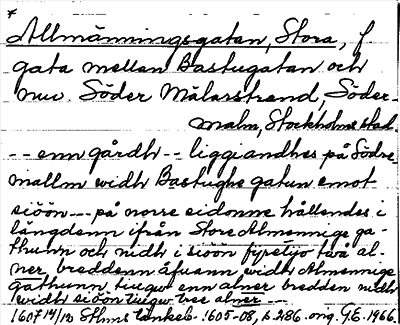 *
Allmänningsgatan, Stora, f.
gata mellan Bastugatan och
nuv Söder Mälarstrand, Söder-
malm, Stockholms stad.
-- enn gårdh -- liggiandhes på Södre
mallm widh Bastughe gatun emot
siöön --- på norre sidonne hållendes i
längdenn ifrån Store Almennige ga-
thunn och nidh i siöön fyretijo två al-
ner, breddenn åfuann widh Almennige
gathunn tiugw enn alner bredden nidh
widh siöön tiugw tree alner --
1607 14/12 Sthms tänkeb. 1605-08, s 286. orig. G.E. 1966.